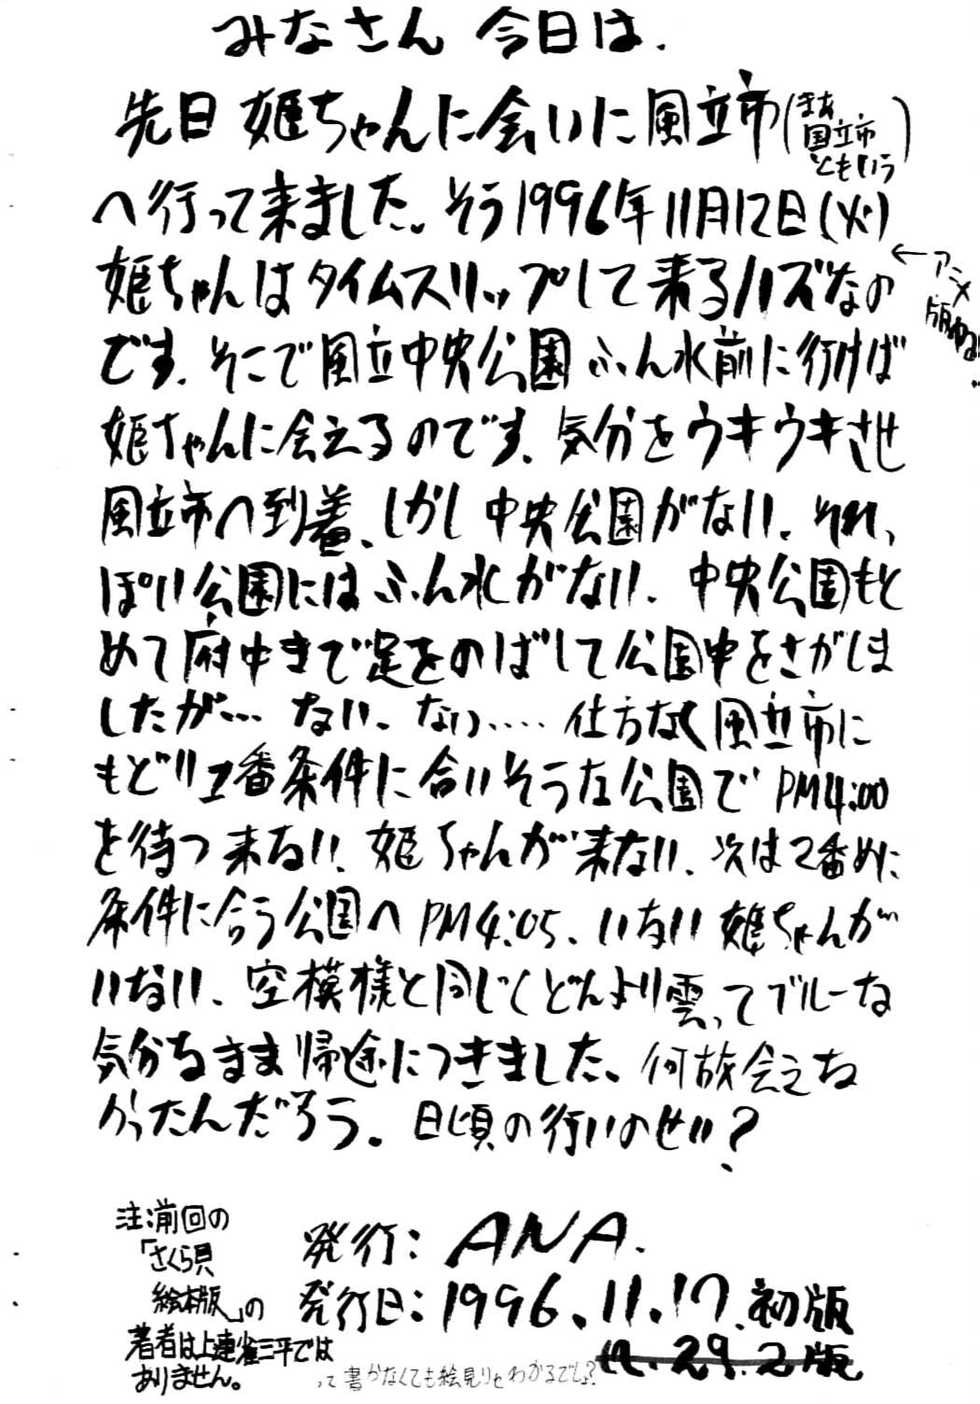 みなさん 今日は.
先日 姫ちゃんに会いに風立市(まあ国立市ともいう)
へ行って来ました。そう1996年11月12日(火)
←アニメ版ね
姫ちゃんはタイムスリップして来るハズなの
です. そこで風立中央公園ふん水前に行けば
姫ちゃんに会えるのです. 気分をウキウキさせ
風立市へ到着、しかし中央公園がない. それっ
ぽい公園にはふん水がない. 中央公園もと
めて府中まで足をのばして公園中をさがしま
したが… ない、ない…. 仕方なく風立市に
もどり1番条件に合いそうな公園でPM4:00
を待つ来ない. 姫ちゃんが来ない. 次は2番めに
条件に合う公園へPM4:05、いない姫ちゃんが
いない、空模様と同じくどんより雲ってブルーな
気分なまま帰途につきました、何故会えな
かったんだろう。日頃の行いのせい?
注:前回の
「さくら貝
絵本版」の
著者は上連雀三平では
ありません。
発行: ANA.
発行日: 1996.11.17.初版
12.29.2版
って書かなくても絵見りゃわかるでしょ?